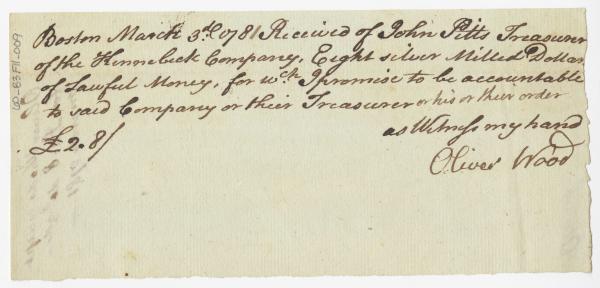 Boston March 3.d 1781 Received of John Pitts Treasurer
of the Kennebeck Company, Eight silver Milled Dollars
of Lawful Money, for w.ch I promise to be accountable
to said Company or their Treasurer or his or their order
as Witness my hand
£2.8/
Oliver Wood